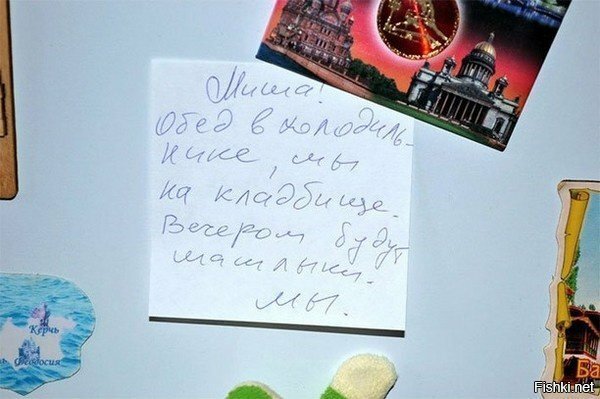 Миша!
Обед в холодиль-
нике, мы
на кладбище.
Вечером будут
шашлыки.
мы.
Керчь
Феодосия
Ба
Fishki.net